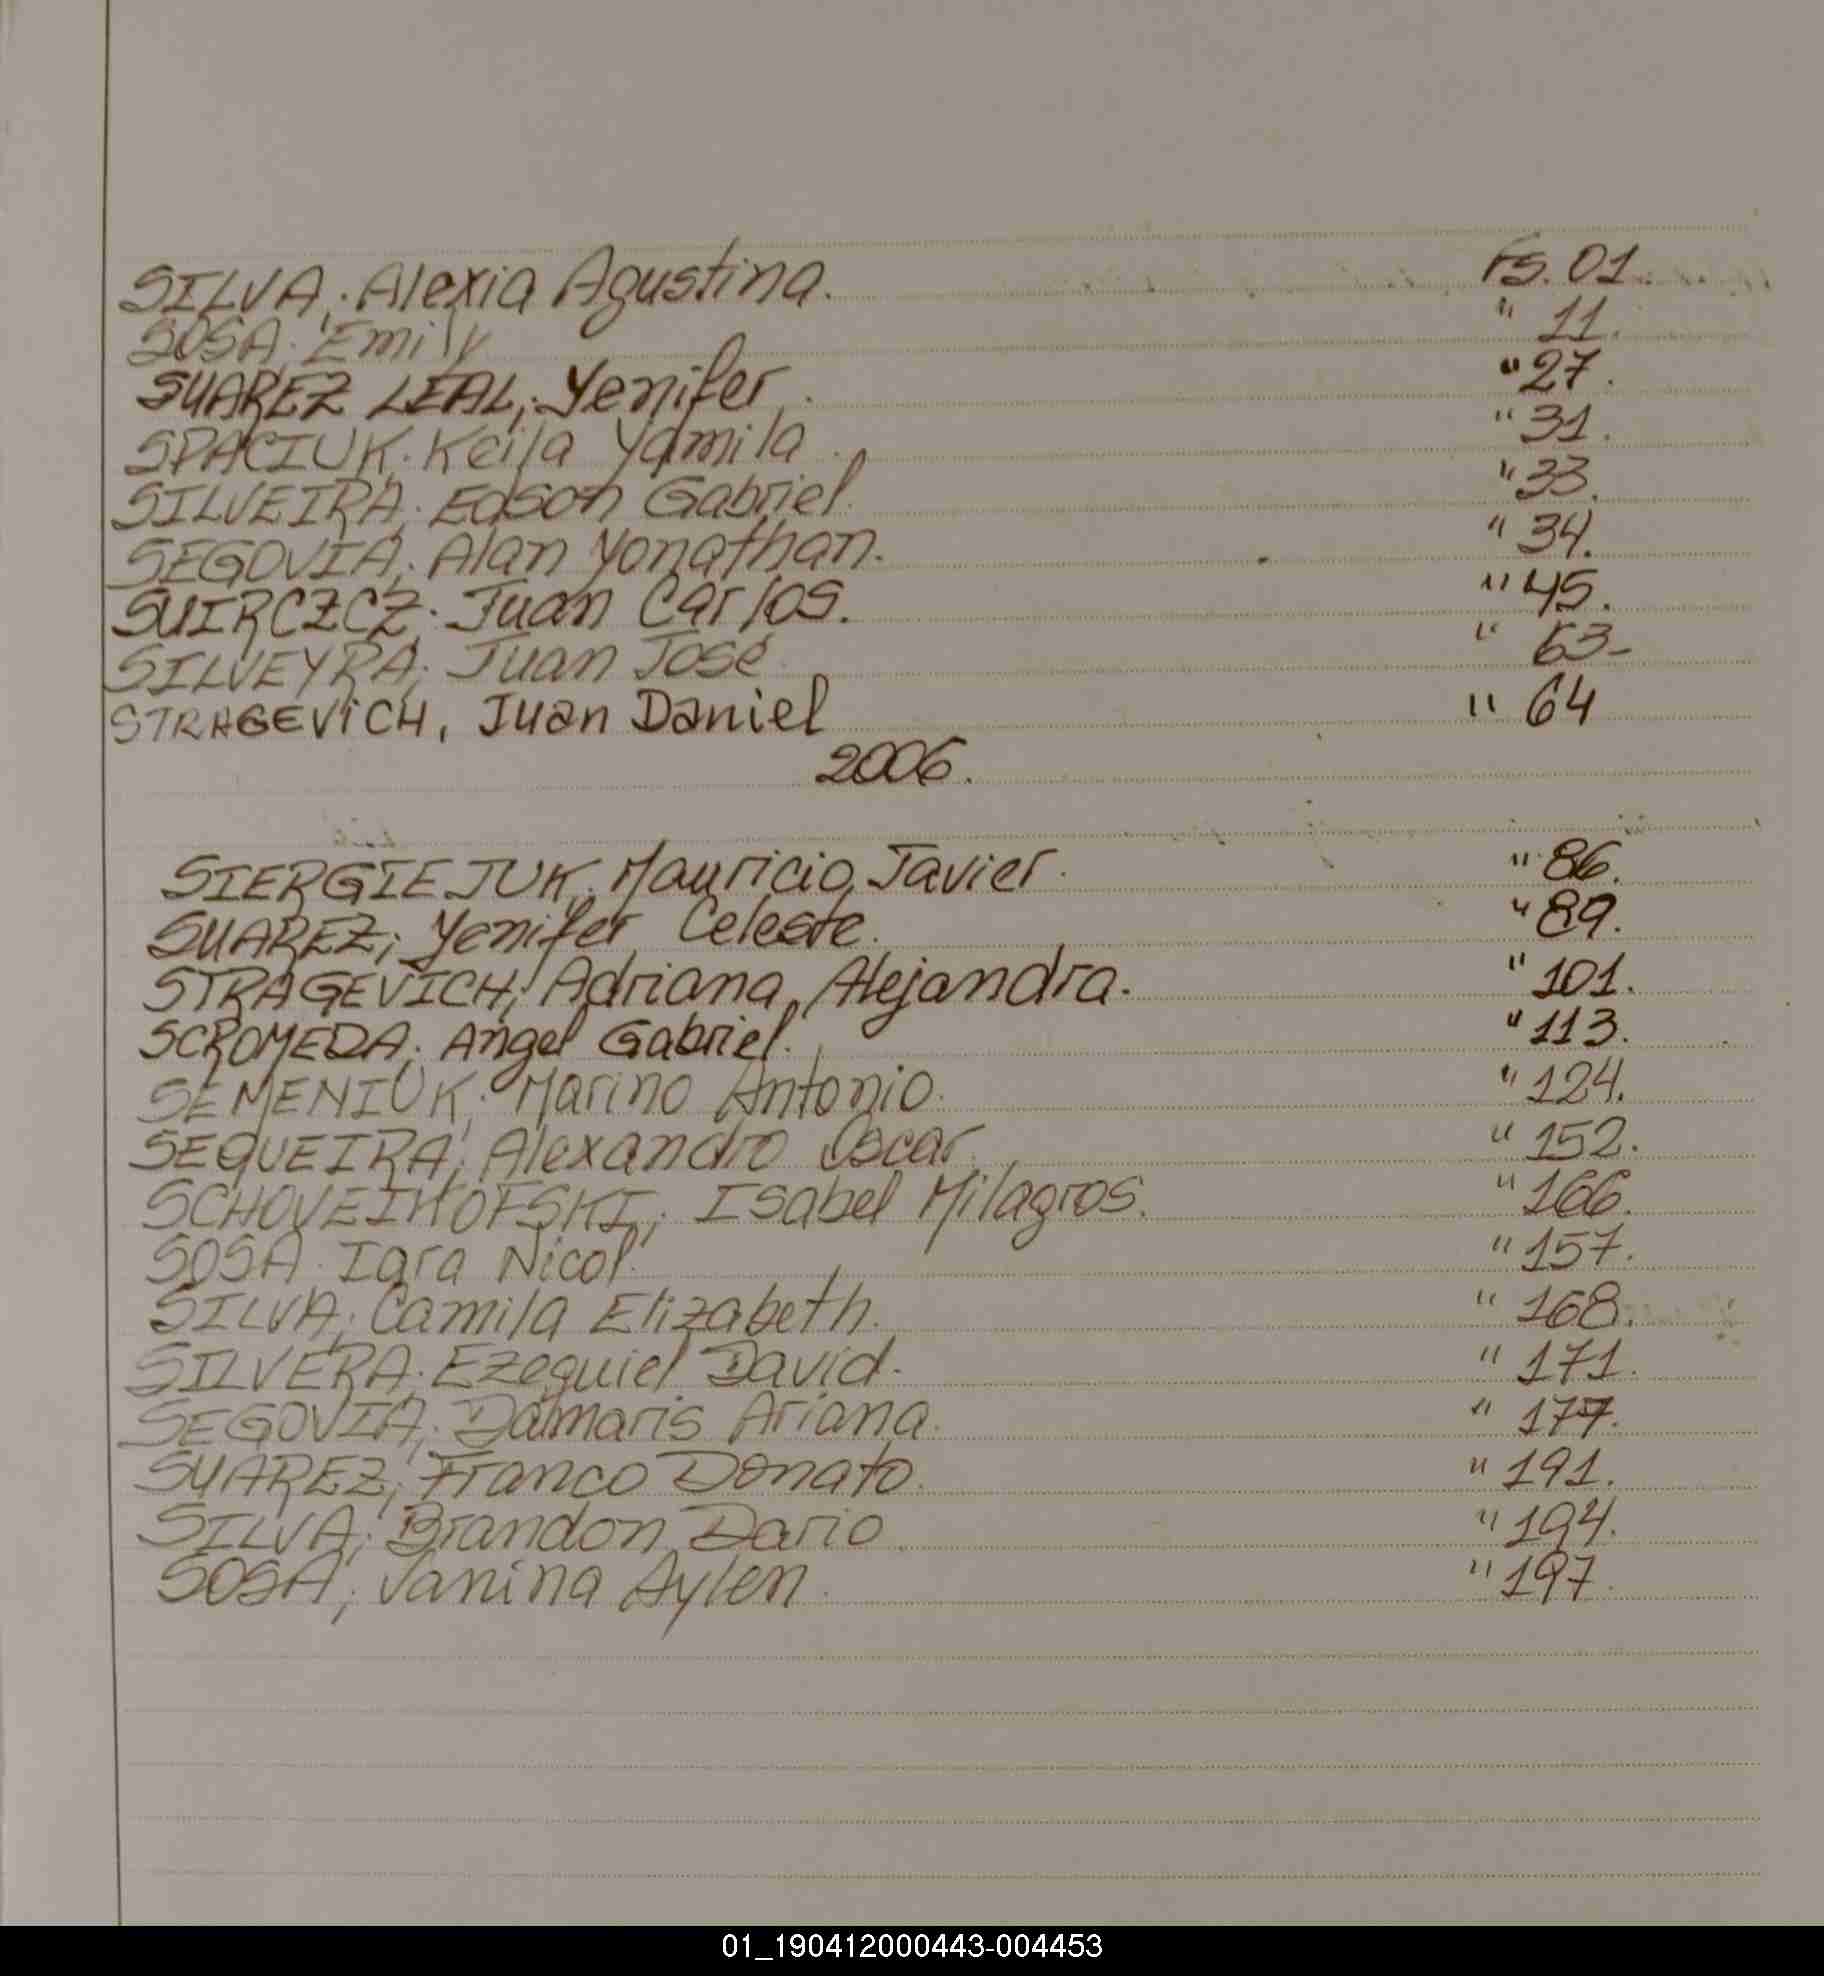 SILVA; Alexia Agustina. Fs. 01.
SOSA; Emily " 11.
SUAREZ LEAL; Yenifer. " 27.
SPACIUK; Keila Yamila. " 31.
SILVEIRA; Edson Gabriel. " 33.
SEGOVIA; Alan Yonathan. " 34.
SUIRCZCZ; Juan Carlos. " 45.
SILVEYRA; Juan José " 63-
STRAGEVICH, Juan Daniel " 64
2006.
SIERGIEJUK; Mauricio Javier. " 86.
SUAREZ; Yenifer Celeste. " 89.
STRAGEVICH; Adriana Alejandra. " 101.
SCROMEDA; Angel Gabriel. " 113.
SEMENIUK; Marino Antonio. " 124.
SEQUEIRA; Alexandro Oscar. " 152.
SCHOVEIKOFSKI; Isabel Milagros. " 166.
SOSA. Iara Nicol. " 157.
SILVA; Camila Elizabeth. " 168.
SILVERA; Ezequiel David. " 171.
SEGOVIA; Damaris Ariana. " 177.
SUAREZ; Franco Donato. " 191.
SILVA; Brandon Dario. " 194.
SOSA; Vanina Aylen. " 197.
01_190412000443-004453